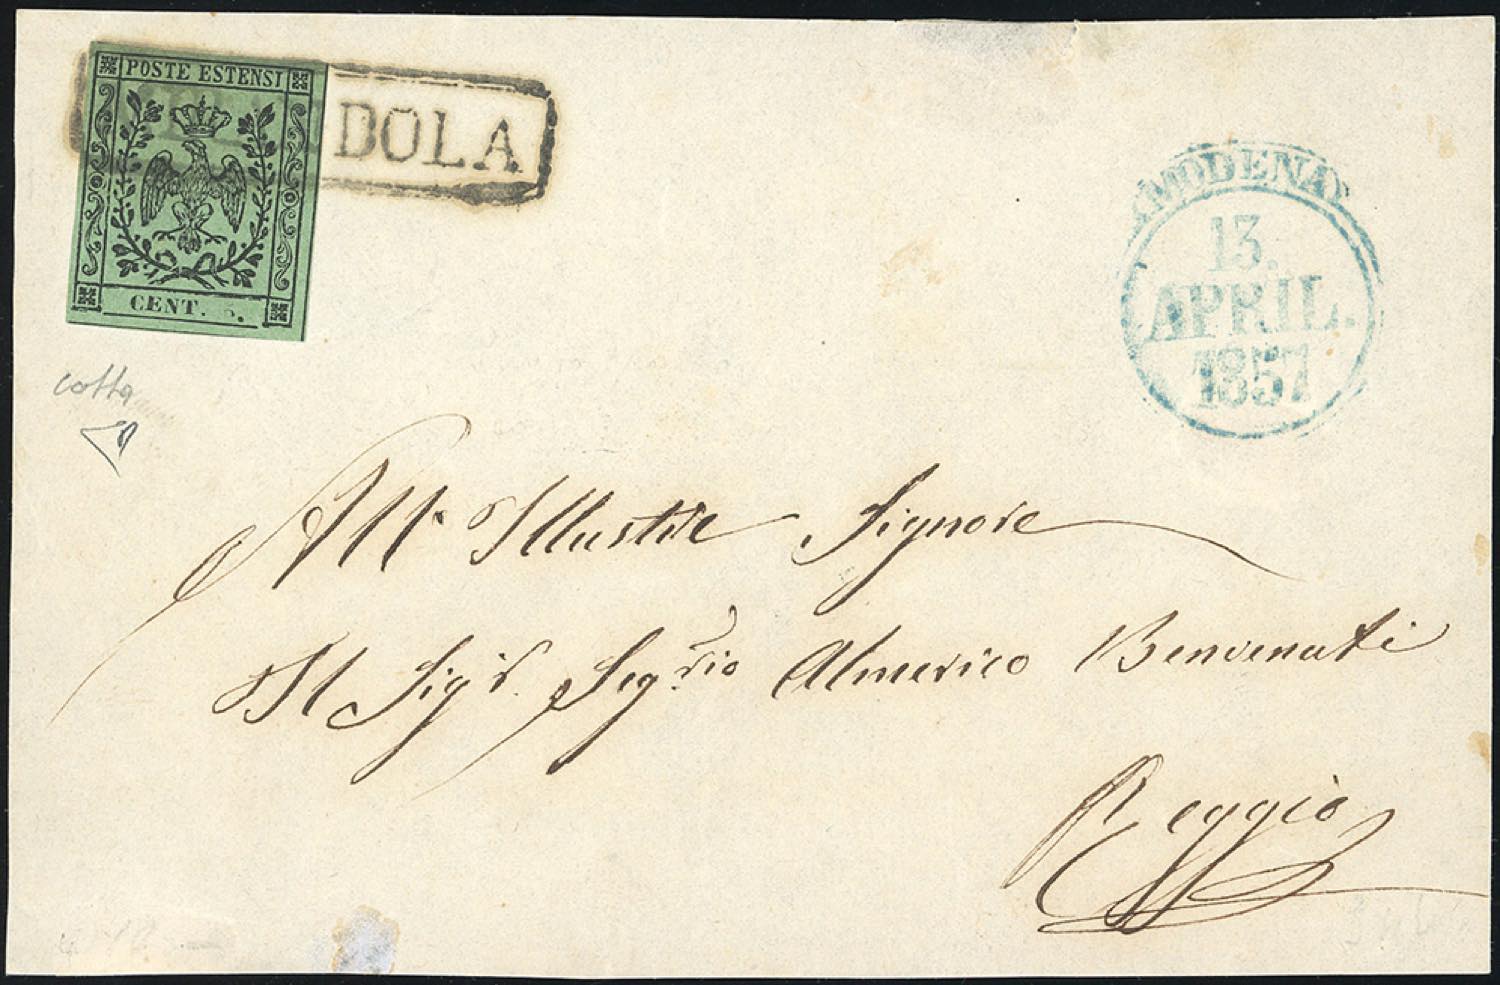 POSTE ESTENSI
CENT. 5.
DOLA
MODENA
13.
APRIL.
1857
cotta
All' Illustre Signore
Il Sigr. Segrio Almerico Benvenuti
Reggio